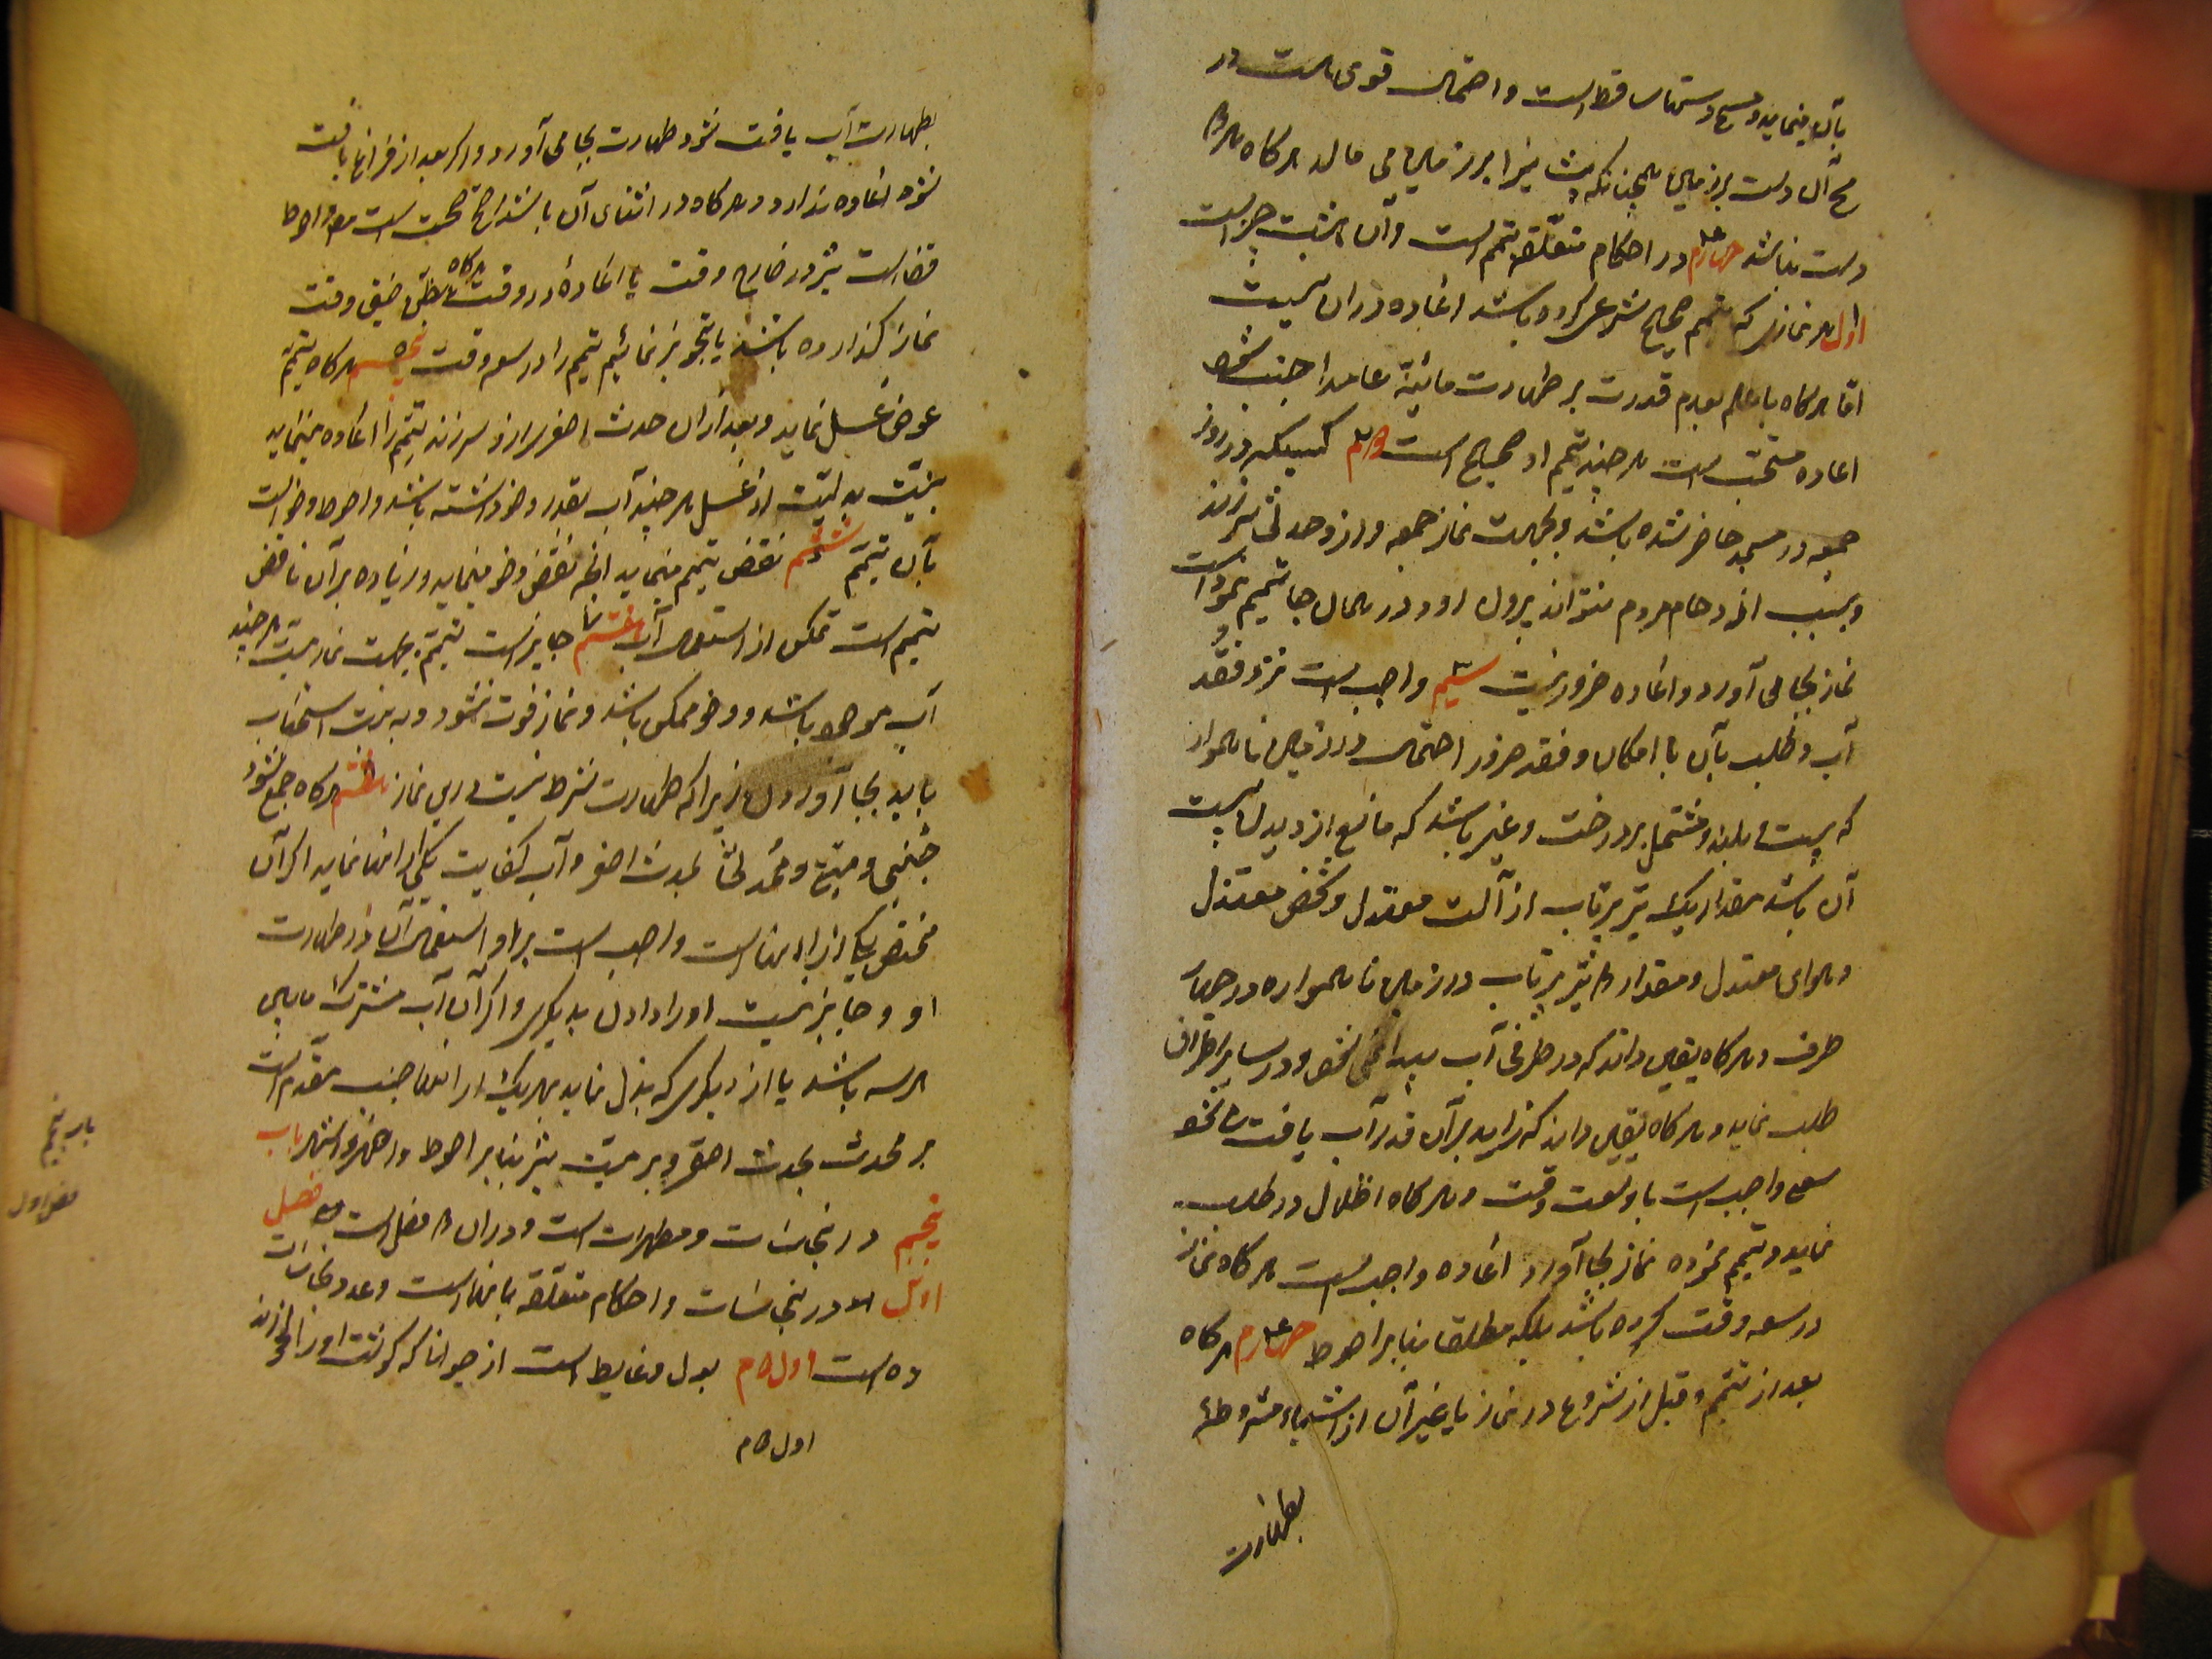 بآن مینماید و مسح دستها ساقط است و احتمال قوی هست در
مسح آن دست بر زمین همچنانکه پیشانی را بر زمین می مالد هرگاه هر دو
دست نباشد چهارم در احکام متعلقه بتیمم است و آن هشت چیز است
اول هر نمازی که بتیمم صحیح شرعی کرده باشد اعاده در آن نیست
اما هرگاه با علم بعدم قدرت بر طهارت مائیّة عامدا جنب شود
اعاده مستحب است هر چند تیمم او صحیح است دویم کسیکه در روز
جمعه در مسجد حاضر شده باشد و بجهت نماز جمعه و از و حدثی سرزند
و بسبب ازدحام مردم نتواند بیرون رود در همان جا تیمم نموده است
نماز بجا می آورد و اعاده ضرور نیست سیم واجب است نزد فقد
آب و طلب بآن با امکان و فقد ضرور احتمال در زمین ناهموار
که پست و بلند و مشتمل بر درخت و غیر باشد که مانع از دیدن است
آن باشد مقدار یک تیر پرتاب از آلت معتدل و شخص معتدل
و هوای معتدل و مقدار دو تیر پرتاب در زمین ناهمواره در چهار
طرف و هرگاه یقین داند که در طرفی آب پیدا نمی شود در سایر اطراف
طلب نماید و هرگاه یقین داند که زاید بر آن قدر آب یافت میشود
سعی واجب است با وسعت وقت و هرگاه اخلال در طلب
نماید و تیمم نموده نماز بجا آورد اعاده واجب است هرگاه نماز
در سعه وقت کرده باشد بلکه مطلقا بنابر احوط چهارم هرگاه
بعد از تیمم و قبل از شروع در نماز یا غیر آن از اشیاء مشروطة
بطهارت
بطهارت آب یافت شود طهارت بجا می آورد و اگر بعد از فراغ یافت
شود اعاده ندارد و هرگاه در اثنای آن باشد اصح صحت است و احوط
قضا است نیز در خارج وقت یا اعاده در وقت هرگاه بظن ضیق وقت
نماز گذارده باشد یا تجویز نمائیم تیمم را در سعه وقت پنجم هرگاه تیمم
عوض غسل نماید و بعد از آن حدث اصغر از او سرزند تیمم را اعاده مینماید
بنیّت بدلیّت از غسل هر چند آب بقدر وضو داشته باشد و احوط وضو است
بآن تیمم ششم نقض تیمم مینماید انچه نقض وضو مینماید و زیاده بر آن ناقض
تیمم است تمکن از استعمال آب هفتم جایز است تیمم بجهت نماز میت هر چند
آب موجود باشد و وضو ممکن باشد و نماز فوت نشود و به نیت استحباب
باید بجا آوردن زیرا که طهارت شرط نیست در این نماز هشتم هرگاه جمع شود
جنبی و میّت و محدثی بحدث اصغر و آب کفایت یکی از اینها نماید اگر آن
مختص بیکی از اینها است واجب است بر او استعمال آن در طهارت
او و جایز نیست او را دادن بدیگری و اگر آن آب مشترک مابین
هر سه باشد یا از دیگری که بذل نماید بهر یک از اینها جنب مقدم است
بر محدث بحدث اصغر و بر میت نیز بنابر احوط و اظهر و اشهر باب
پنجم در نجاسات و مطهرات است و در آن دو فصل است فصل
اول در نجاسات و احکام متعلقه بآنها است و عدد نجاسات
ده است اول دوم بول و غایط است از حیوانا که گوشت او را
اول دوم
باب پنجم
فصل اول